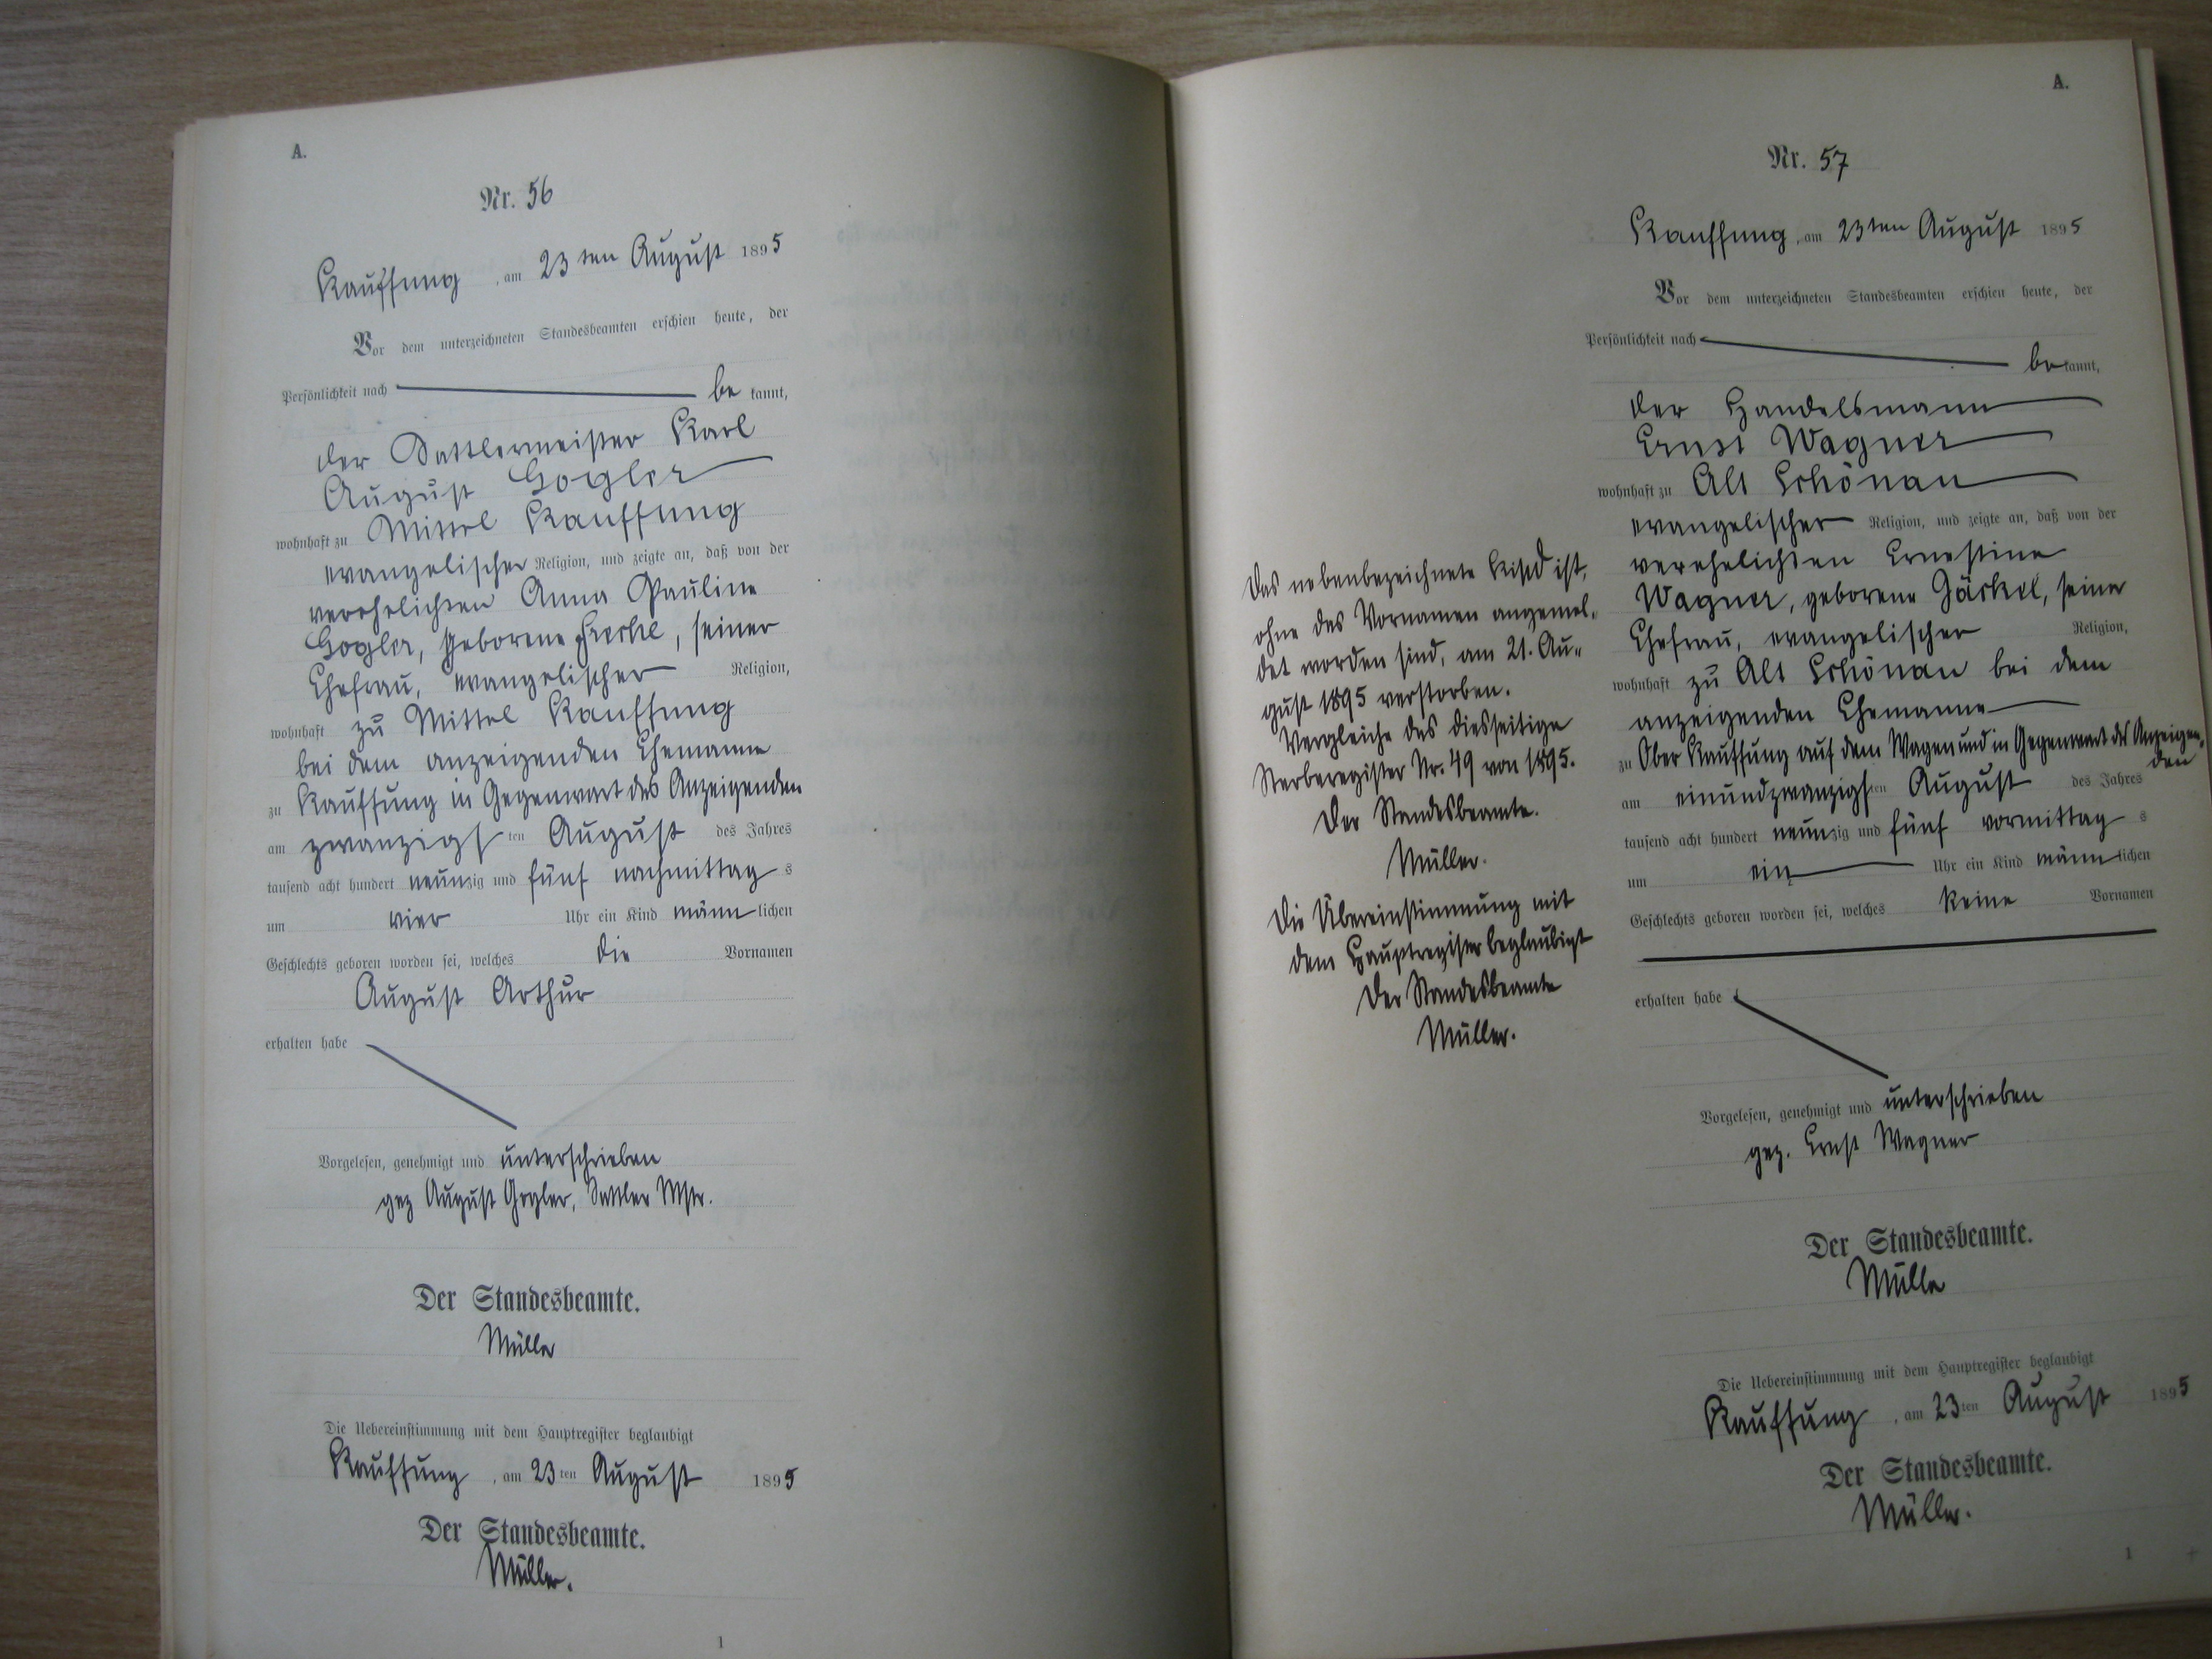 A.
Nr. 56
Kauffung, am 23ten August 1895
Vor dem unterzeichneten Standesbeamten erschien heute, der
Persönlichkeit nach be kannt,
der Sattlermeister Karl
August Gogler
wohnhaft zu Mittel Kauffung
evangelischer Religion, und zeigte an, daß von der
verehelichten Anna Pauline
Gogler, geborene, seiner
Ehefrau, evangelischer Religion,
wohnhaft zu Mittel Kauffung
bei dem anzeigenden Ehemanne
zu Kauffung in Gegenwart des Anzeigenden
am zwanzigsten August des Jahres
tausend acht hundert neunzig und fünf nachmittags
um vier Uhr ein Kind männlichen
Geschlechts geboren worden sei, welches die Vornamen
August Arthur
erhalten habe
Vorgelesen, genehmigt und unterschrieben
gez August Gogler, Sattler Mstr.
Der Standesbeamte.
Müller
Die Uebereinstimmung mit dem Hauptregister beglaubigt
Kauffung, am 23ten August 1895
Der Standesbeamte.
Müller.
1
A.
Nr. 57
Kauffung, am 23ten August 1895
Vor dem unterzeichneten Standesbeamten erschien heute, der
Persönlichkeit nach bekannt,
der Handelsmann
Ernst Wagner
wohnhaft zu Alt Schönau
evangelischer Religion, und zeigte an, daß von der
verehelichten Ernestine
Wagner, geborene Gäckel, seiner
Ehefrau, evangelischer Religion,
wohnhaft zu Alt Schönau bei dem
anzeigenden Ehemanne
zu Ober Kauffung auf dem Wagen und in Gegenwart des Anzeigen-
den
am einundzwanzigsten August des Jahres
tausend acht hundert neunzig und fünf vormittags
um ein Uhr ein Kind männlichen
Geschlechts geboren worden sei, welches keine Vornamen
erhalten habe
Vorgelesen, genehmigt und unterschrieben
gez. Ernst Wagner
Der Standesbeamte.
Müller
Die Uebereinstimmung mit dem Hauptregister beglaubigt
Kauffung, am 23ten August 1895
Der Standesbeamte.
Müller.
1
Das nebenbezeichnete Kind ist,
ohne des Vornamen angemel-
det worden sind, am 21. Au-
gust 1895 verstorben.
Vergleiche das diesseitige
Sterberegister Nr. 49 von 1895.
Der Standesbeamte.
Müller.
Die Übereinstimmung mit
dem Hauptregister beglaubigt
Der Standesbeamte
Müller.